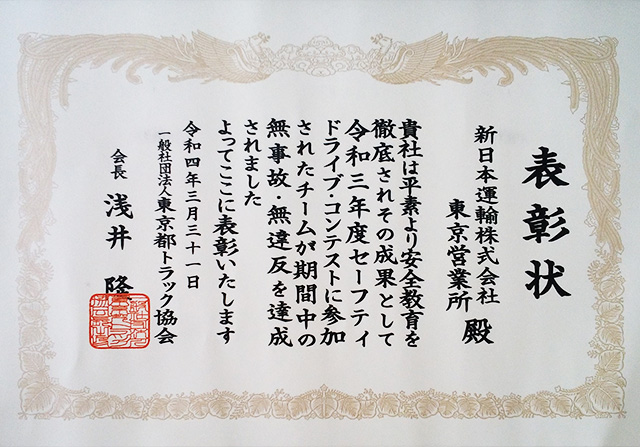 表彰状
新日本運輸株式会社
東京営業所 殿
貴社は平素より安全教育を
徹底されその成果として
令和三年度セーフティ
ドライブ・コンテストに参加
されたチームが期間中の
無事故・無違反を達成
されました
よってここに表彰いたします
令和四年三月三十一日
一般社団法人東京都トラック協会
会長 浅井 隆